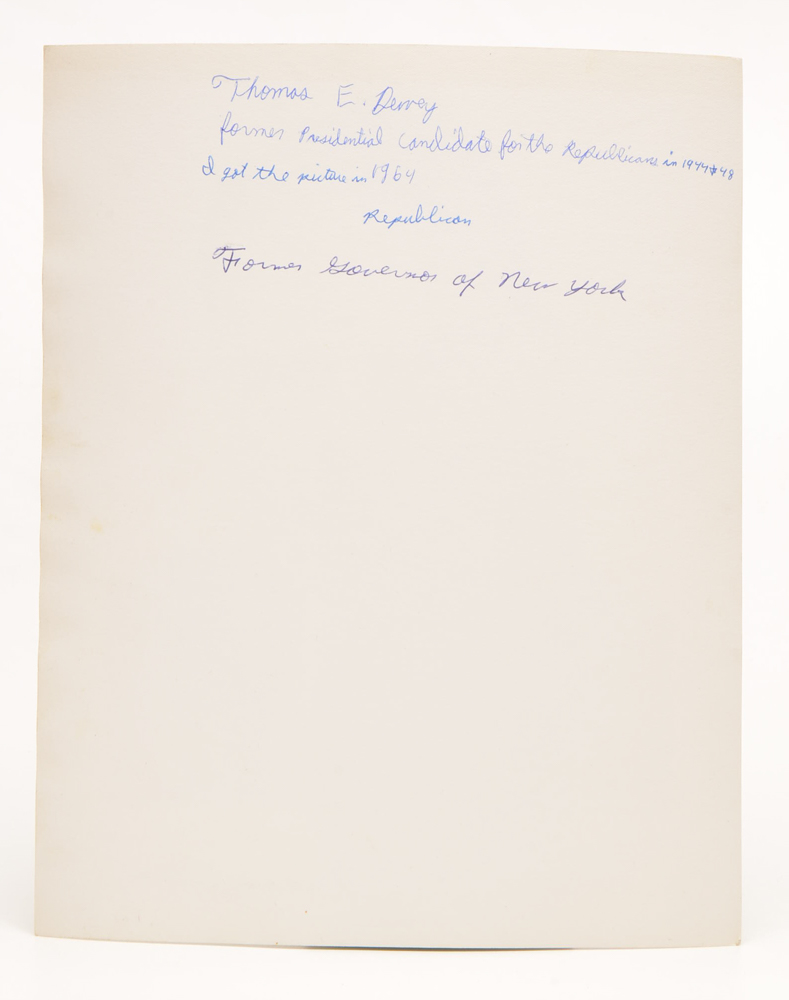 Thomas E. Dewey
former Presidential candidate for the Republicans in 1944 & 48
I got the picture in 1964
Republican
Former Governor of New York